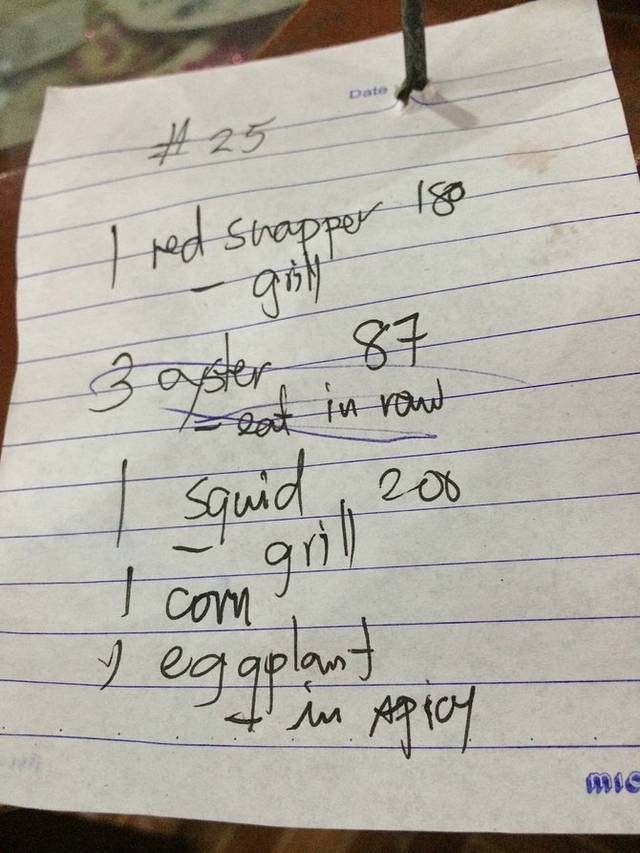 Date
# 25
1 red snapper 180
- grill
3 oyster 87
- eat in raw
1 squid 200
- grill
1 corn
1 eggplant
- in spicy
mic